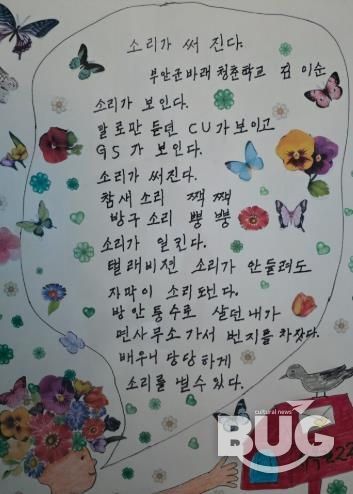 소리가 써 진다.
부안군바래 청춘학교 김 이순
소리가 보인다.
말로만 듣던 CU가 보이고
GS 가 보인다.
소리가 써진다.
참새 소리 짹 짹
방구 소리 뿡 뿡
소리가 일킨다.
텔래비젼 소리가 안들려도
자막이
방안퉁수로 살던 내가
면사무소 가서 번지를 차잤다.
배우니 당당하게
소리를 낼수 있다.
cultural news
BUG